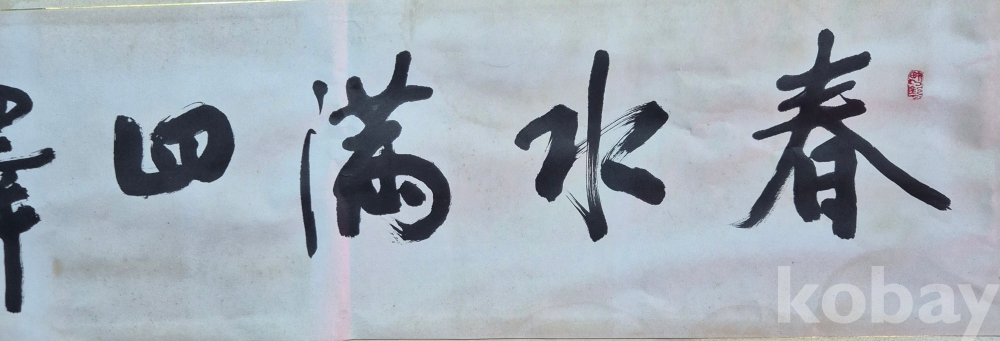 春水滿四澤
kobay